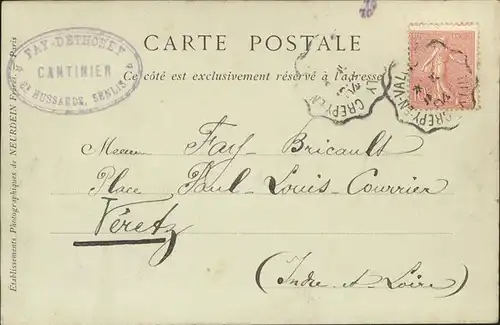 FAY-DETHOREY
CANTINIER
HUSSARDS, SENLIS
CARTE POSTALE
Ce côté est exclusivement réservé à l'adresse
CREPY-EN-VALOIS
Fay-Bricault
Place Paul-Louis-Courrier
Véretz
(Indre-et-Loire)
Etablissements Photographiques de NEURDEIN Frères. — Paris